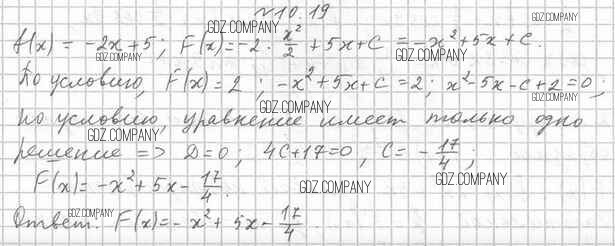 №10.19
f(x) = -2x+5; F(x) = -2 · x²/2 + 5x + C = -x² + 5x + C.
По условию, F(x) = 2; -x² + 5x + C = 2; x² - 5x - C + 2 = 0,
по условию, уравнение имеет только одно
решение => D=0; 4C+17=0, C = -17/4;
F(x) = -x² + 5x - 17/4.
Ответ: F(x) = -x² + 5x - 17/4.
GDZ.COMPANY
GDZ.COMPANY
GDZ.COMPANY
GDZ.COMPANY
GDZ.COMPANY
GDZ.COMPANY
GDZ.COMPANY
GDZ.COMPANY
GDZ.COMPANY
GDZ.COMPANY
GDZ.COMPANY